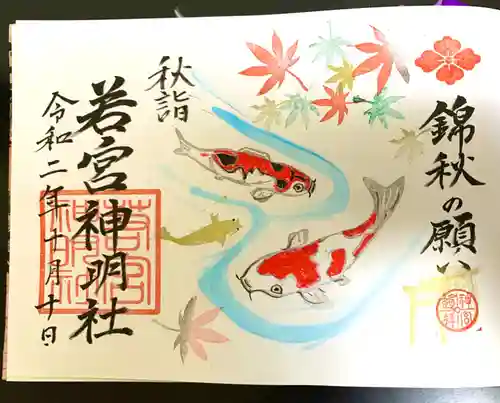 錦秋の願い
秋詣
若宮神明社
令和二年十月十日